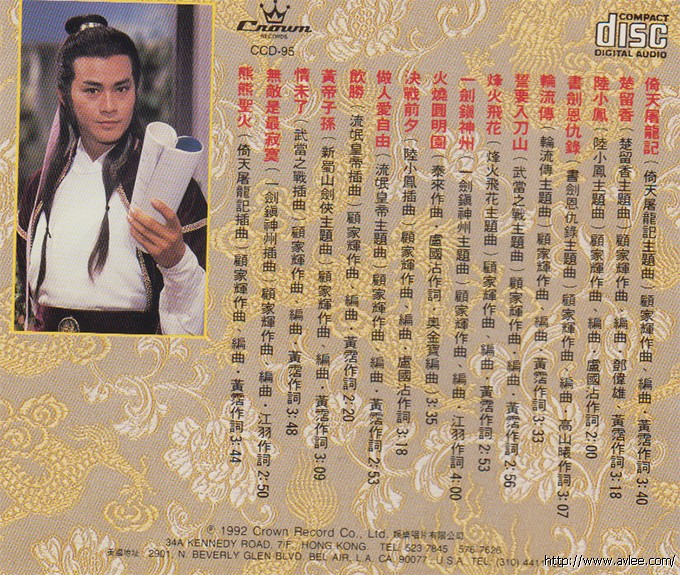 Crown
RECORDS
CCD-95
COMPACT
disc
DIGITAL AUDIO
倚天屠龍記（倚天屠龍記主題曲）顧家輝作曲、編曲・黃霑作詞3:40
楚留香（楚留香主題曲）顧家輝作曲、編曲・鄧偉雄、黃霑作詞3:18
陸小鳳（陸小鳳主題曲）顧家輝作曲、編曲・盧國沾作詞2:00
書劍恩仇錄（書劍恩仇錄主題曲）顧家輝作曲、編曲・高山曦作詞3:07
輪流傳（輪流傳主題曲）顧家輝作曲、編曲・黃霑作詞3:33
誓要入刀山（武當之戰主題曲）顧家輝作曲、編曲・黃霑作詞2:56
烽火飛花（烽火飛花主題曲）顧家輝作曲、編曲・盧國沾作詞2:53
一劍鎮神州（一劍鎮神州主題曲）顧家輝作曲、編曲・江羽作詞4:00
火燒圓明園（泰來作曲・盧國沾作詞・奧金寶編曲）3:35
決戰前夕（陸小鳳插曲）顧家輝作曲、編曲・盧國沾作詞3:18
做人愛自由（流氓皇帝主題曲）顧家輝作曲、編曲・黃霑作詞2:53
飲勝（流氓皇帝插曲）顧家輝作曲、編曲・黃霑作詞2:20
黃帝子孫（新蜀山劍俠主題曲）顧家輝作曲、編曲・黃霑作詞3:09
情未了（武當之戰插曲）顧家輝作曲、編曲・黃霑作詞3:48
無敵是最寂寞（一劍鎮神州插曲）顧家輝作曲、編曲・江羽作詞2:50
熊熊聖火（倚天屠龍記插曲）顧家輝作曲、編曲・黃霑作詞3:44
℗ 1992 Crown Record Co., Ltd. 娛樂唱片有限公司
34A KENNEDY ROAD, 7/F., HONG KONG. TEL: 523 7845 576-7626
美國地址: 2901, N. BEVERLY GLEN BLVD. BEL AIR, L.A. CA. 90077 U.S.A. TEL: (310) 441
http://www.avlee.com/